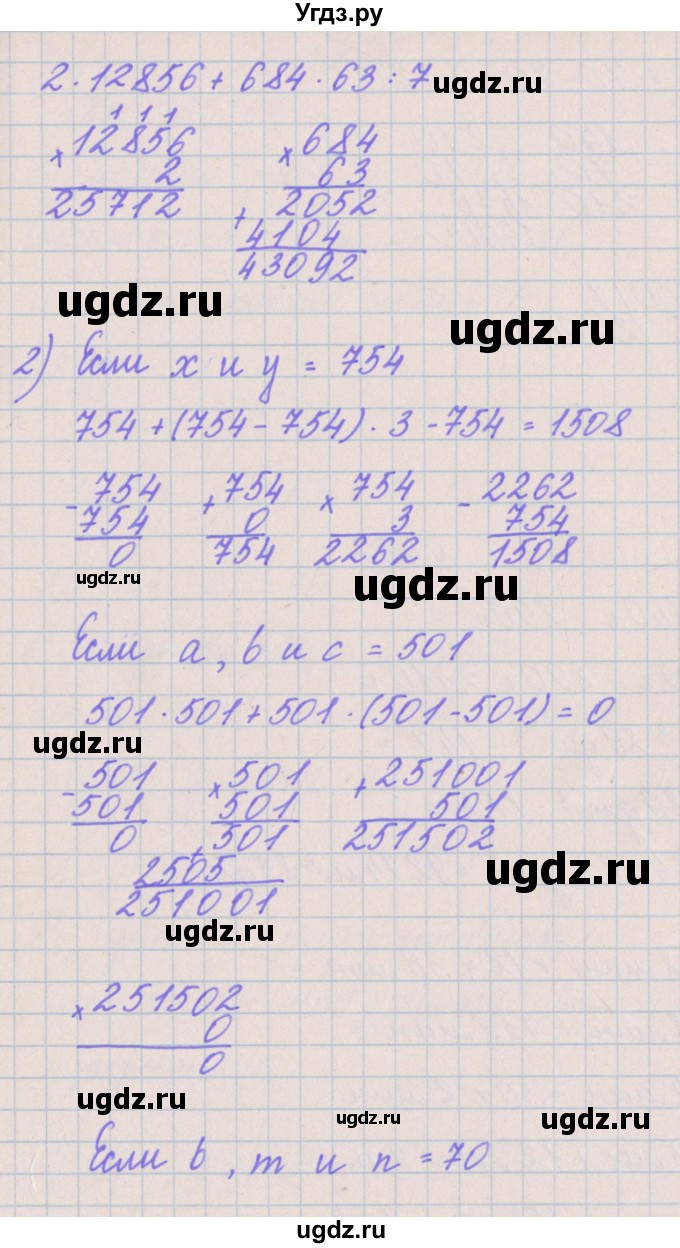 Угдз.ру
2·12856+684·63:7 ugdz.ru
1 1 1
×12856 ×684
2 63
25712 + 2052
4104
43092
ugdz.ru
ugdz.ru
2) Если x и y = 754
754+(754-754)·3-754=1508
-754 +754 ×754 -2262
754 0 3 754
0 754 2262 1508
ugdz.ru
ugdz.ru
Если a, b и c = 501
501·501+501·(501-501)=0
ugdz.ru
-501 ×501 +251001
501 501 501
0 +501 251502
2505
251001
ugdz.ru
ugdz.ru
×251502
0
0
ugdz.ru
ugdz.ru
ugdz.ru
Если b, m и n = 70
ugdz.ru